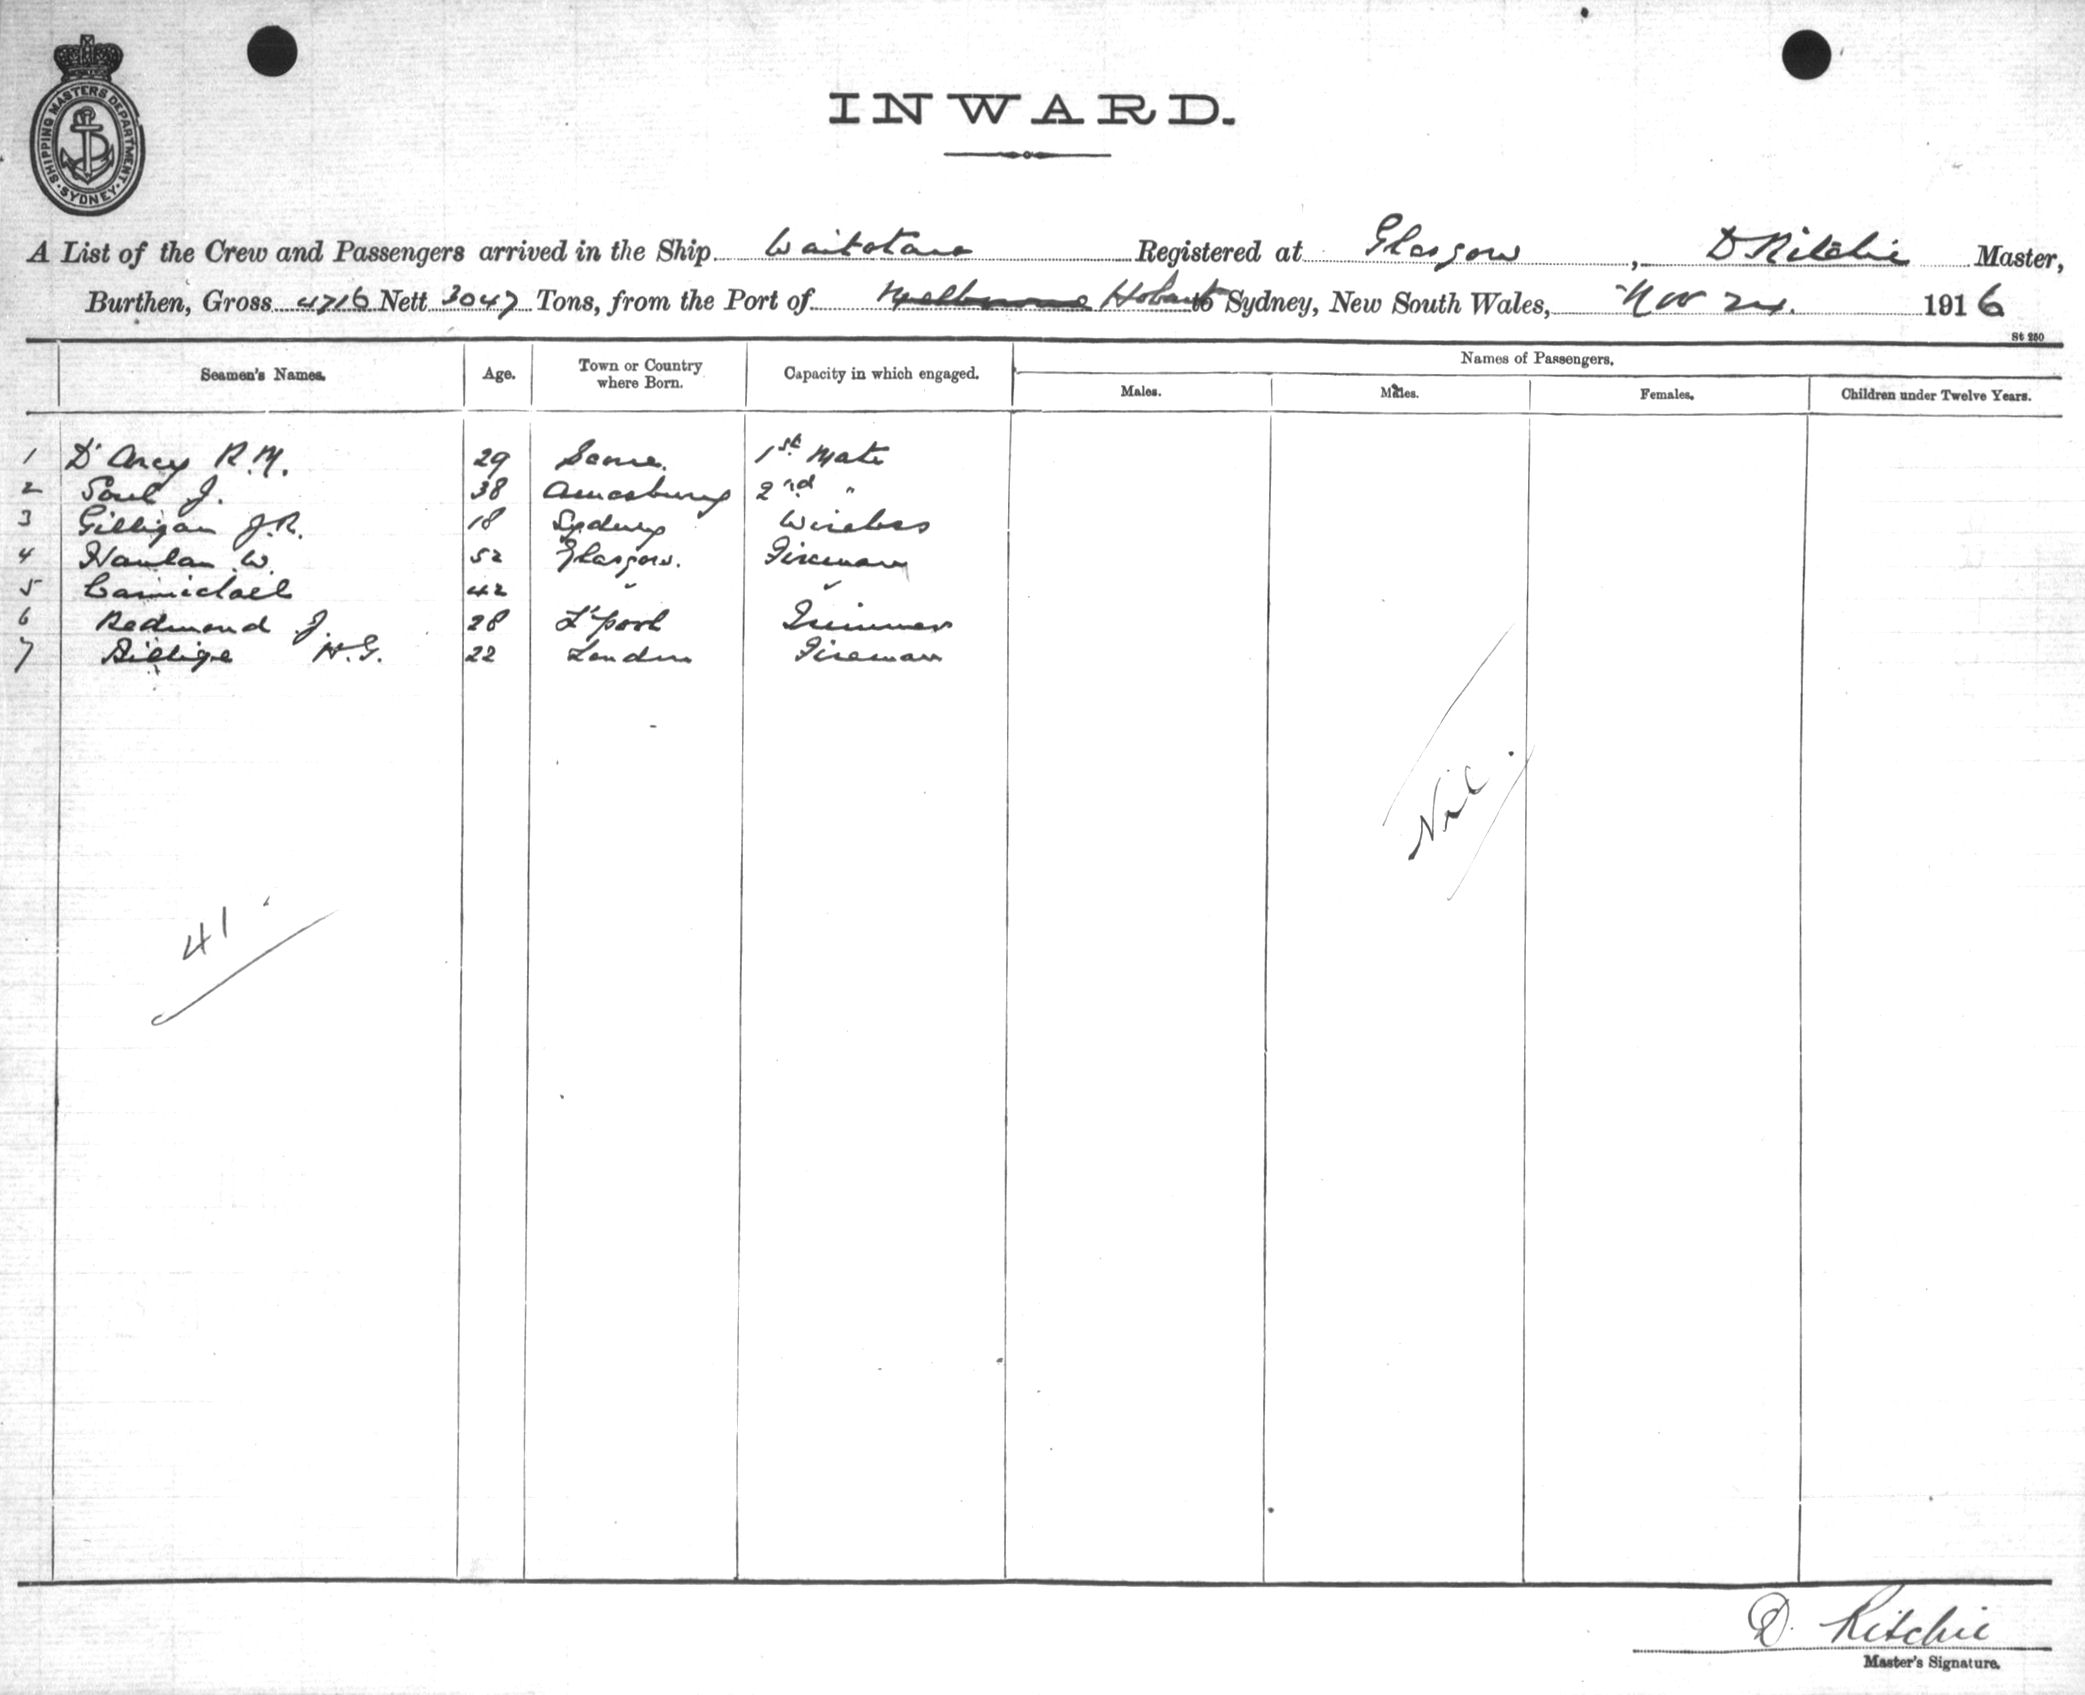 SHIPPING MASTERS DEPARTMENT · SYDNEY ·
INWARD.
A List of the Crew and Passengers arrived in the Ship Waitotara Registered at Glasgow, D Ritchie Master,
Burthen, Gross 4716 Nett 3047 Tons, from the Port of Melbourne Hobart to Sydney, New South Wales, Nov 24. 1916
St 250
Seamen's Names. Age. Town or Country where Born. Capacity in which engaged. Names of Passengers.
Males. Males. Females. Children under Twelve Years.
1 D'Arcy R.M. 29 1st Mate
2 Soul J. 38 Amesbury 2nd "
3 Gilligan J.R. 18 Sydney Wireless
4 Hanlan W. 52 Glasgow. Fireman
5 Carmichael 42 " "
6 Redmond J. 28 L'pool Trimmer
7 H.G. 22 London Fireman
Nil.
41
D. Ritchie
Master's Signature.